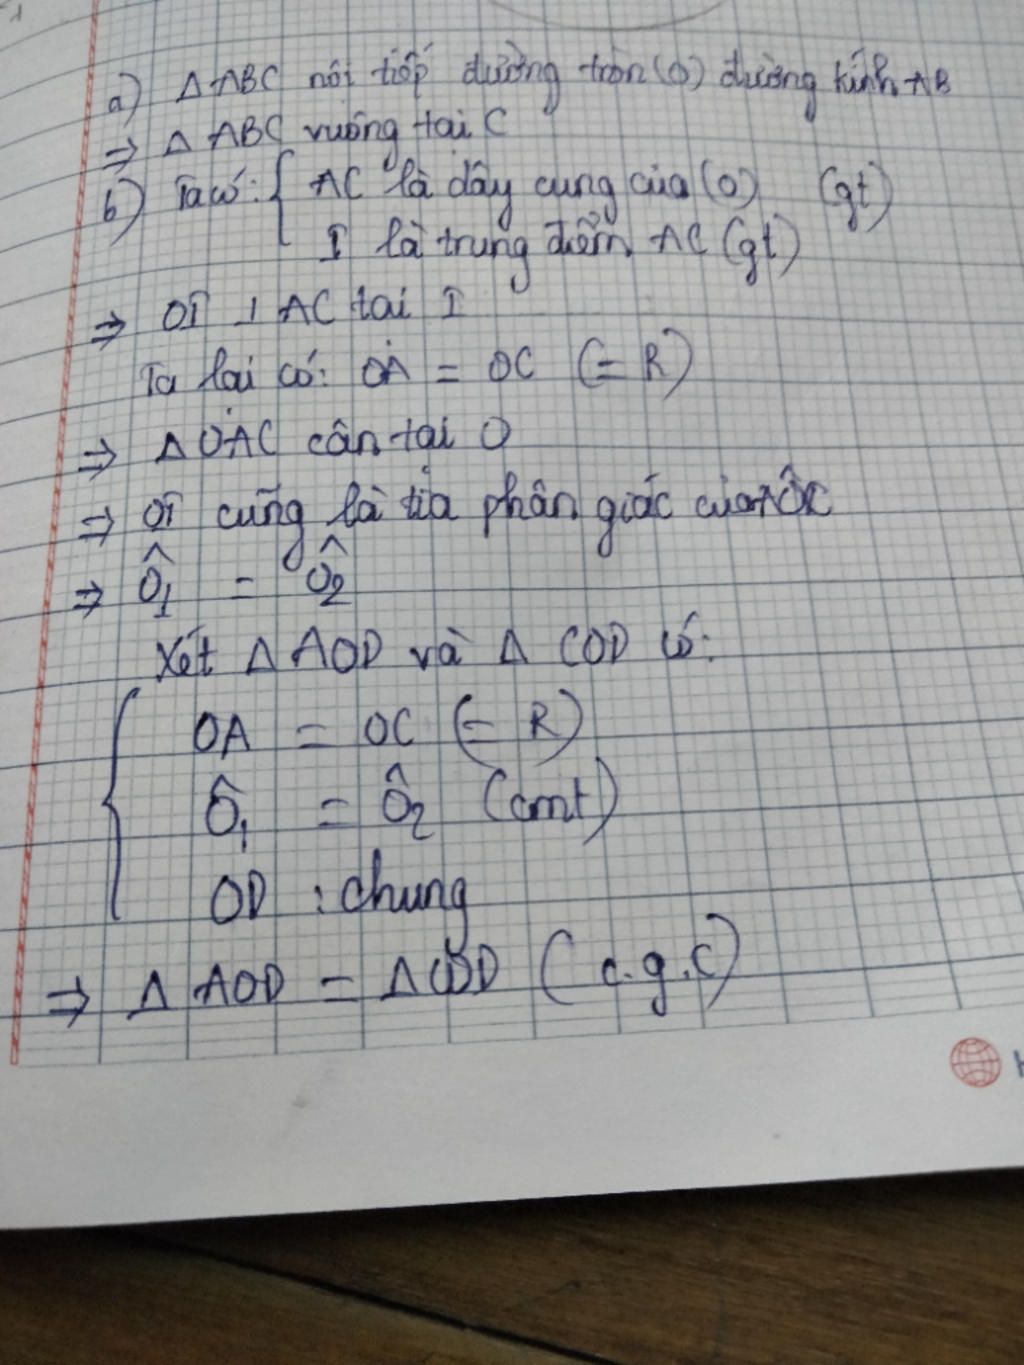 a) Δ ABC nội tiếp đường tròn (O) đường kính AB
⇒ Δ ABC vuông tại C
b) Ta có: { AC là dây cung của (O) (gt)
I là trung điểm AC (gt)
⇒ OI ⊥ AC tại I
Ta lại có: OA = OC (= R)
⇒ Δ OAC cân tại O
⇒ OI cũng là tia phân giác của AÔC
⇒ Ô₁ = Ô₂
Xét Δ AOD và Δ COD có:
{ OA = OC (= R)
Ô₁ = Ô₂ (cmt)
OD : chung
⇒ Δ AOD = Δ COD (c.g.c)